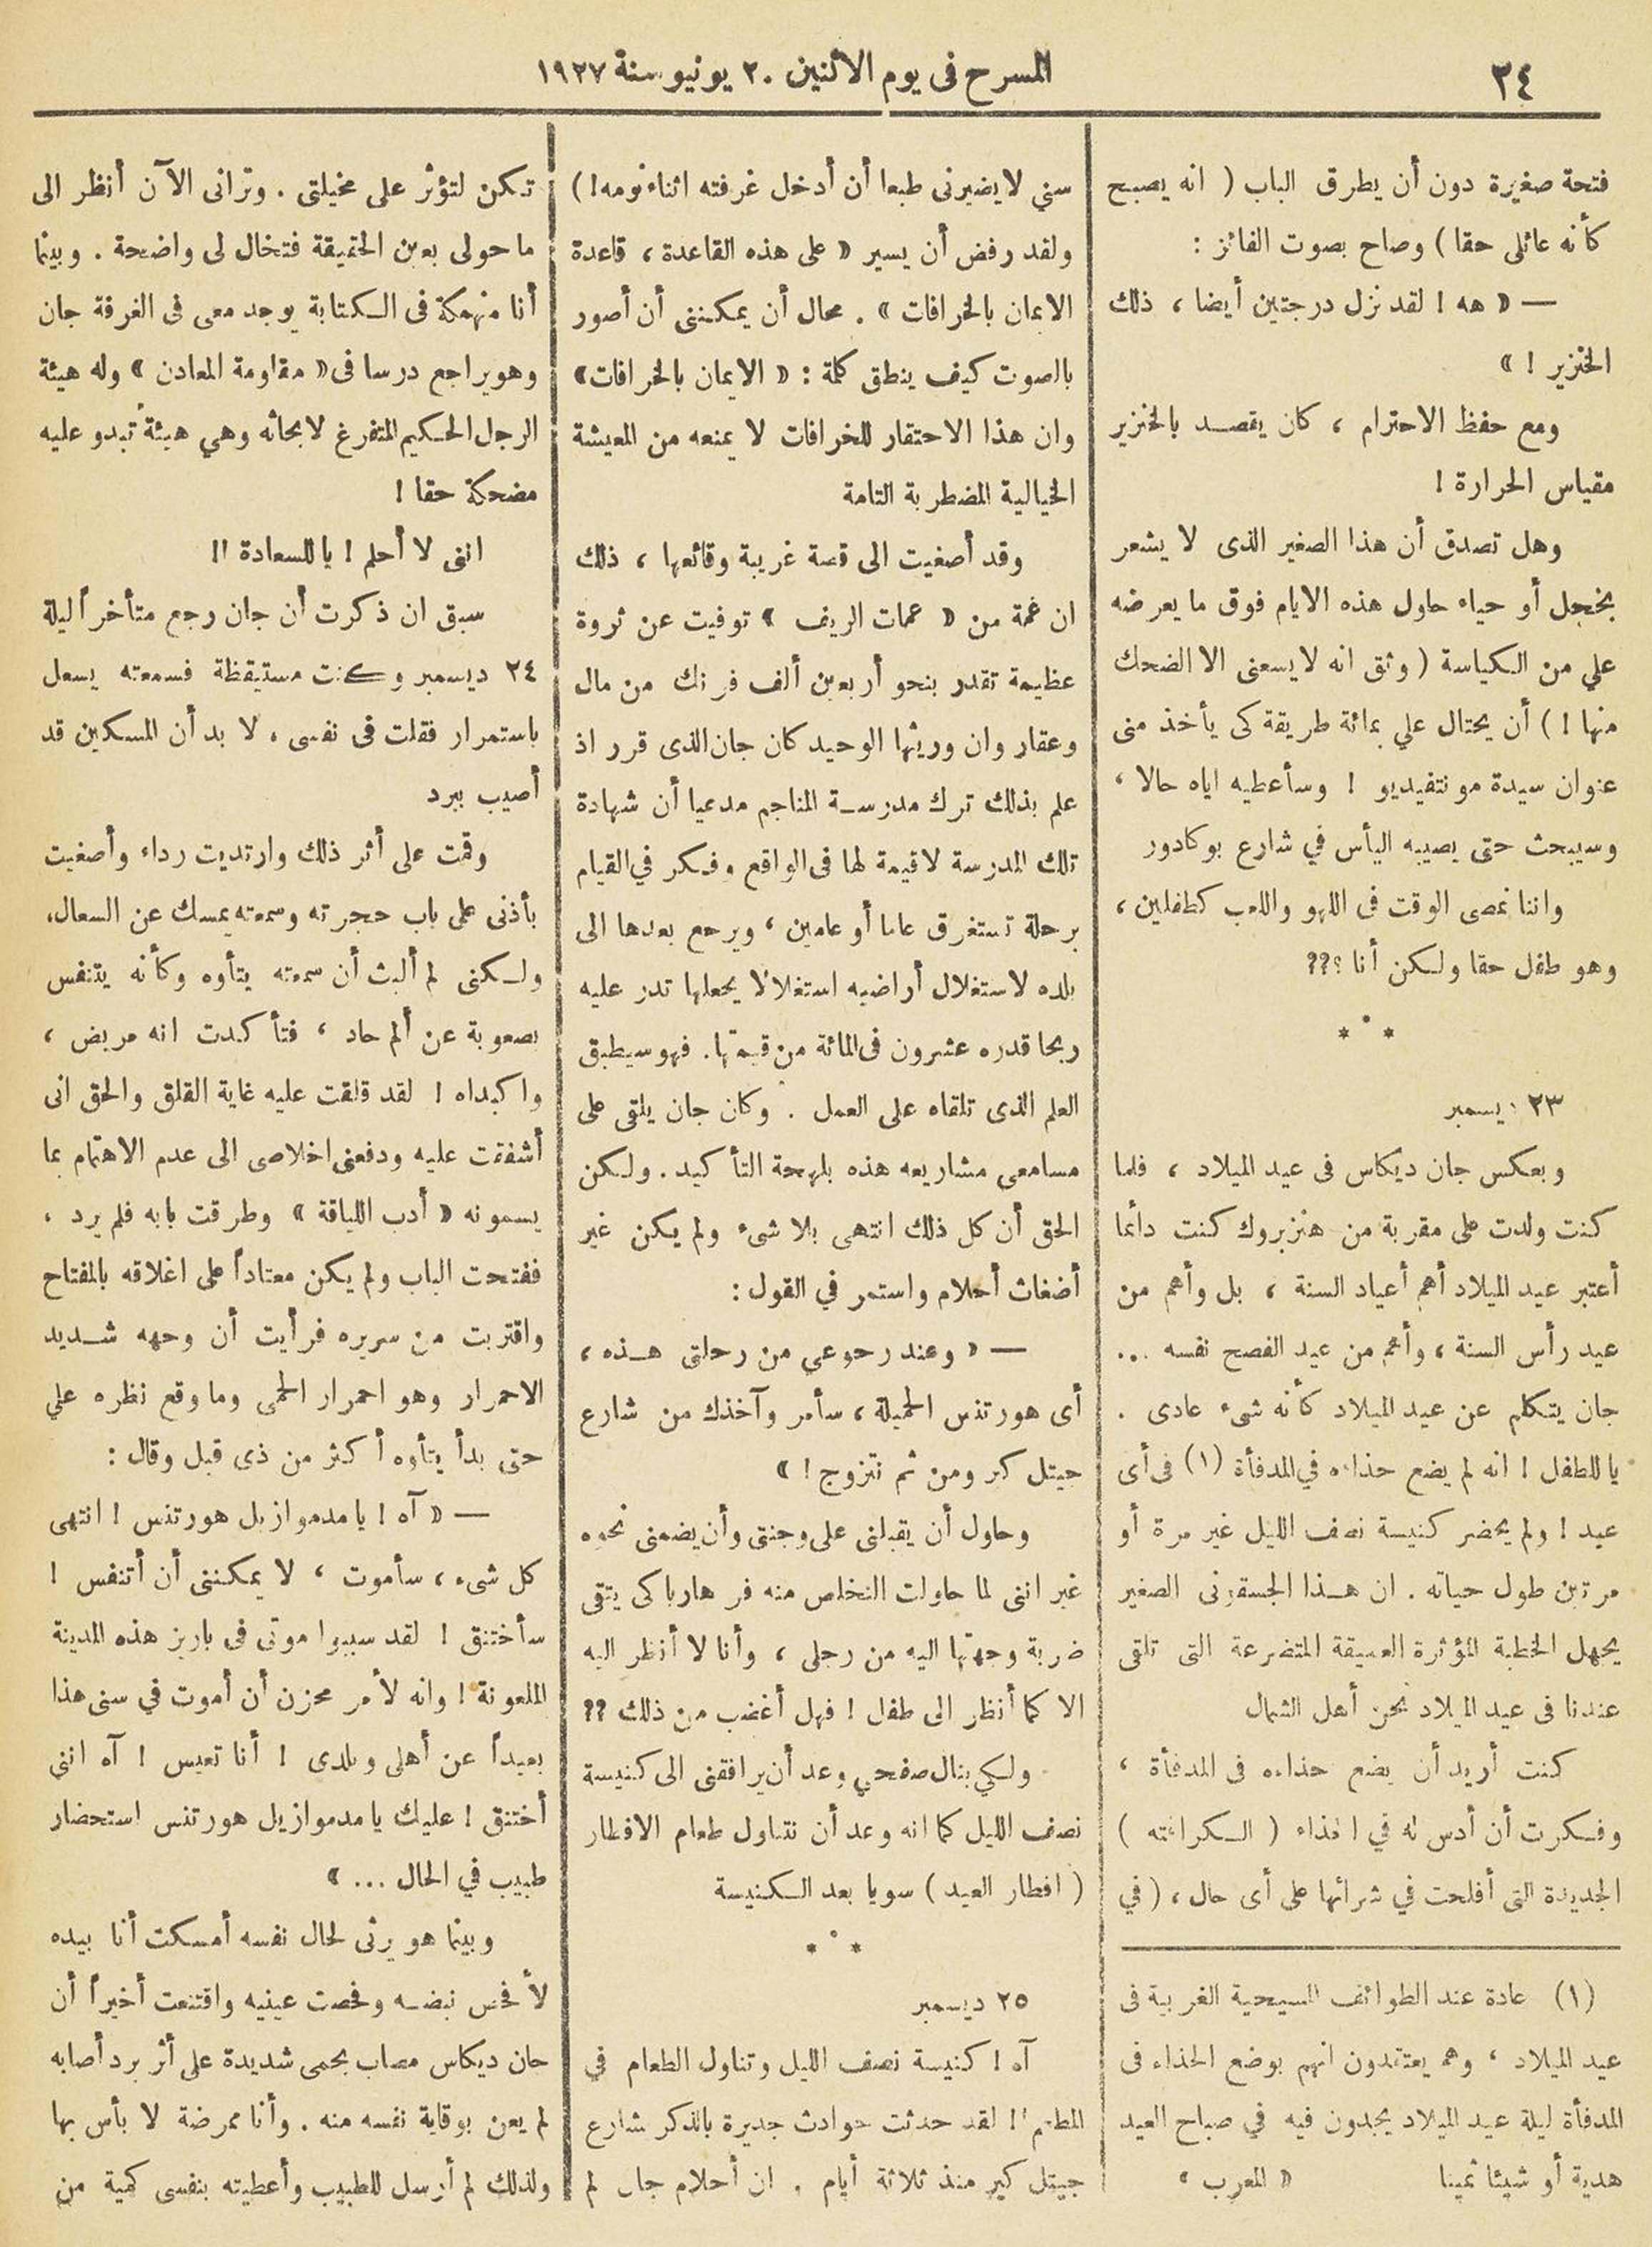 ٣٤
المسرح فى يوم الاثنين ٢٠ يونيو سنة ١٩٢٧
فتحة صغيرة دون أن يطرق الباب ( انه يصبح
كأنه عائلى حقا ) وصاح بصوت الفائز :
— « هه ! لقد نزل درجتين أيضا ، ذلك
الخنزير ! »
ومع حفظ الاحترام ، كان يقصد بالخنزير
مقياس الحرارة !
وهل تصدق أن هذا الصغير الذى لا يشعر
بخجل أو حياء حاول هذه الايام فوق ما يعرضه
علي من الكياسة ( وثق انه لا يسعنى الا الضحك
منها ! ) أن يحتال علي بمائة طريقة كى يأخذ منى
عنوان سيدة مونتفيديو ! وسأعطيه اياه حالا ،
وسيبحث حتى يصيبه اليأس في شارع بوكادور
واننا نمضى الوقت فى اللهو واللعب كطفلين ،
وهو طفل حقا ولكن أنا ؟؟؟
* * *
٢٣ ديسمبر
وبعكس جان ديكاس فى عيد الميلاد ، فلما
كنت ولدت على مقربة من هنزبروك كنت دائما
أعتبر عيد الميلاد أهم أعياد السنة ، بل وأهم من
عيد رأس السنة ، وأهم من عيد الفصح نفسه ...
جان يتكلم عن عيد الميلاد كأنه شىء عادى .
يا للطفل ! انه لم يضع حذاءه في المدفأة (١) فى أى
عيد ! ولم يحضر كنيسة نصف الليل غير مرة أو
مرتين طول حياته . ان هذا الجسقونى الصغير
يجهل الخطبة المؤثرة العميقة المتضرعة التى تلقى
عندنا فى عيد الميلاد نحن أهل الشمال
كنت أريد أن يضع حذاءه فى المدفأة ،
وفكرت أن أدس له في الحذاء ( الكرافته )
الجديدة التى أفلحت في شرائها على أى حال ، ( في
(١) عادة عند الطوائف المسيحية الغربية فى
عيد الميلاد ، وهم يعتقدون انهم بوضع الحذاء فى
المدفأة ليلة عيد الميلاد يجدون فيه في صباح العيد
هدية أو شيئا ثمينا « المعرب »
سني لا يضيرنى طبعا أن أدخل غرفته اثناء نومه ! )
ولقد رفض أن يسير « على هذه القاعدة ، قاعدة
الايمان بالخرافات » . محال أن يمكننى أن أصور
بالصوت كيف ينطق كلمة : « الايمان بالخرافات »
وان هذا الاحتقار للخرافات لا يمنعه من المعيشة
الخيالية المضطربة التامة
وقد أصغيت الى قصة غريبة وقائعها ، ذلك
ان عمة من « عمات الريف » توفيت عن ثروة
عظيمة تقدر بنحو أربعين ألف فرنك من مال
وعقار وان وريثها الوحيد كان جان الذى قرر اذ
علم بذلك ترك مدرسة المناجم مدعيا أن شهادة
تلك المدرسة لا قيمة لها فى الواقع وفكر في القيام
برحلة تستغرق عاما أو عامين ، ويرجع بعدها الى
بلده لاستغلال أراضيه استغلالا يجعلها تدر عليه
ربحا قدره عشرون فى المائة من قيمتها . فهو سيطبق
العلم الذى تلقاه على العمل . وكان جان يلقى على
مسامعى مشاريعه هذه بلهجة التأكيد . ولكن
الحق أن كل ذلك انتهى بلا شىء ولم يكن غير
أضغاث أحلام واستمر في القول :
— « وعند رجوعى من رحلتى هذه ،
أى هورتنس الجميلة ، سأمر وآخذك من شارع
جيتل كير ومن ثم نتزوج ! »
وحاول أن يقبلنى على وجنتى وأن يضمنى نحوه
غير اننى لما حاولت التخلص منه فر هاربا كى يتقى
ضربة وجهتها اليه من رجلى ، وأنا لا أنظر اليه
الا كما أنظر الى طفل ! فهل أغضب من ذلك ؟؟
ولكي ينال صفحى وعد أن يرافقنى الى كنيسة
نصف الليل كما انه وعد أن نتناول طعام الافطار
( افطار العيد ) سويا بعد الكنيسة
* * *
٢٥ ديسمبر
آه ! كنيسة نصف الليل وتناول الطعام في
المطعم !! لقد حدثت حوادث جديرة بالذكر شارع
جيتل كير منذ ثلاثة أيام . ان أحلام جان لم
تكن لتؤثر على مخيلتى . وترانى الآن أنظر الى
ما حولى بعين الحقيقة فتخال لى واضحة . وبينما
أنا منهمكة فى الكتابة يوجد معى فى الغرفة جان
وهو يراجع درسا فى « مقاومة المعادن » وله هيئة
الرجل الحكيم المتفرغ لابحاثه وهي هيئة تبدو عليه
مضحكة حقا !
اننى لا أحلم ! يا للسعادة !!
سبق ان ذكرت أن جان رجع متأخراً ليلة
٢٤ ديسمبر وكنت مستيقظة فسمعته يسعل
باستمرار فقلت فى نفسى ، لا بد أن المسكين قد
أصيب ببرد
وقمت على أثر ذلك وارتديت رداء وأصغيت
بأذنى على باب حجرته وسمعته يمسك عن السعال ،
ولكنى لم ألبث أن سمعته يتأوه وكأنه يتنفس
بصعوبة عن ألم حاد ، فتأكدت انه مريض ،
واكبداه ! لقد قلقت عليه غاية القلق والحق انى
أشفقت عليه ودفعنى اخلاصى الى عدم الاهتمام بما
يسمونه « أدب اللياقة » وطرقت بابه فلم يرد ،
ففتحت الباب ولم يكن معتاداً على اغلاقه بالمفتاح
واقتربت من سريره فرأيت أن وجهه شديد
الاحمرار وهو احمرار الحمى وما وقع نظره علي
حتى بدأ يتأوه أكثر من ذى قبل وقال :
— « آه ! يا مدموازيل هورتنس ! انتهى
كل شىء ، سأموت ، لا يمكننى أن أتنفس !
سأختنق ! لقد سببوا موتى فى باريز هذه المدينة
الملعونة ! وانه لأمر محزن أن أموت في سنى هذا
بعيداً عن أهلى وبلدى ! أنا تعيس ! آه اننى
أختنق ! عليك يا مدموازيل هورتنس استحضار
طبيب في الحال ... »
وبينما هو يرثى لحال نفسه أمسكت أنا بيده
لأفحص نبضه وفحصت عينيه واقتنعت أخيراً أن
جان ديكاس مصاب بحمى شديدة على أثر برد أصابه
لم يعن بوقاية نفسه منه . وأنا ممرضة لا بأس بها
ولذلك لم أرسل للطبيب وأعطيته بنفسى كمية من